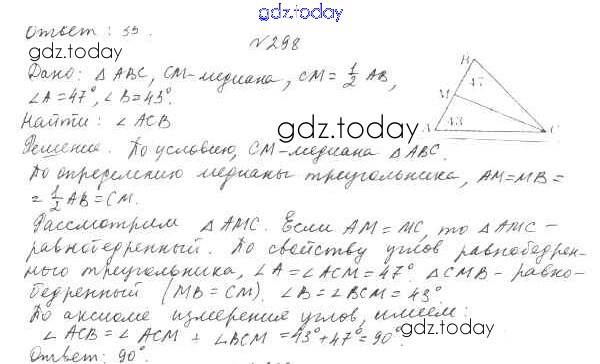 gdz.today
Ответ: 55.
gdz.today
№298
Дано: △ABC, CM-медиана, CM = 1/2 AB,
∠A = 47°, ∠B = 43°.
Найти: ∠ACB
B
47
M
A
43
C
gdz.today
Решение. По условию, CM-медиана △ABC.
По определению медианы треугольника, AM=MB=
= 1/2 AB = CM.
Рассмотрим △AMC. Если AM = MC, то △AMC-
равнобедренный. По свойству углов равнобедрен-
ного треугольника, ∠A = ∠ACM = 47° △CMB - равно-
бедренный (MB = CM). ∠B = ∠BCM = 43°
По аксиоме измерения углов, имеем:
∠ACB = ∠ACM + ∠BCM = 43° + 47° = 90°.
gdz.today
Ответ: 90°.